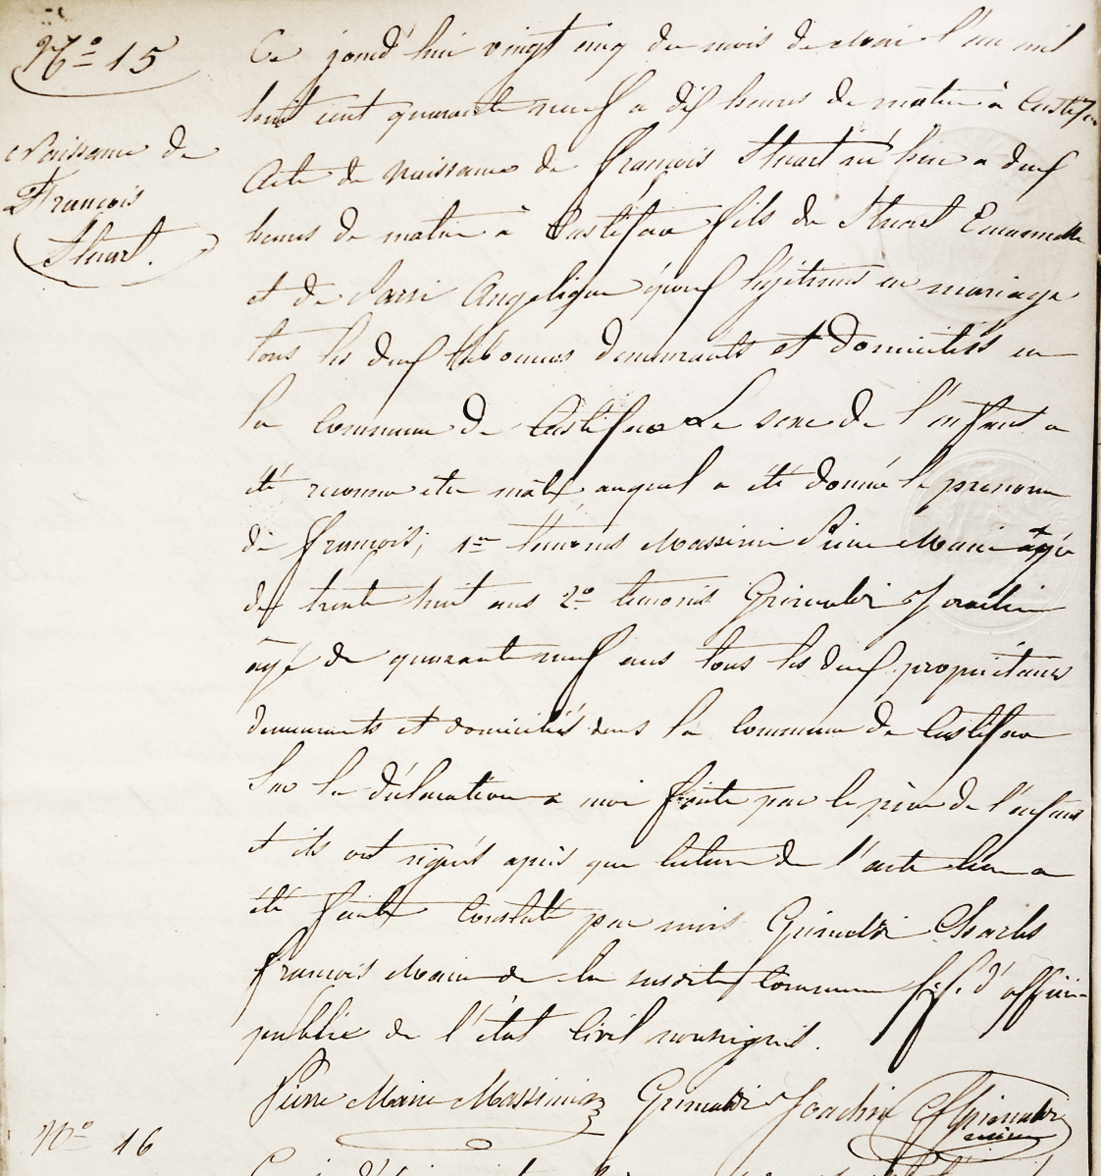 N.º 15
Naissance de
François
Stuart.
Ce jourd'hui vingt cinq du mois de mai l'an mil
huit cent quarante neuf a dix heures de matin à Castifao
Acte de naissance de françois Stuart né hier a deux
heures de matin à Castifao fils de Stuart Emanuelle
et de Sarri Angelique époux légitimes en mariage
tous les deux laboureurs demeurants et domiciliés en
la commune de Castifao Le sexe de l'enfant a
été reconnu etre mâle auquel a été donné le prenom
de françois; 1er temoins Massimi Pierre Marie agé
de trente huit ans 2º temoins Grimaldi Joachin
agé de quarante neuf ans tous les deux proprietaires
demeurants et domiciliés dans la commune de Castifao
Sur la déclaration a moi faite par le père de l'enfant
et ils ont signés après que lecture de l'acte leur a
été faite Constaté par mois Grimaldi Charles
françois Maire de la susdite Commune f.f. d'officier
public de l'état Civil soussignés.
Pierre Marie Massimi Grimaldi Joachin Grimaldi
N.º 16